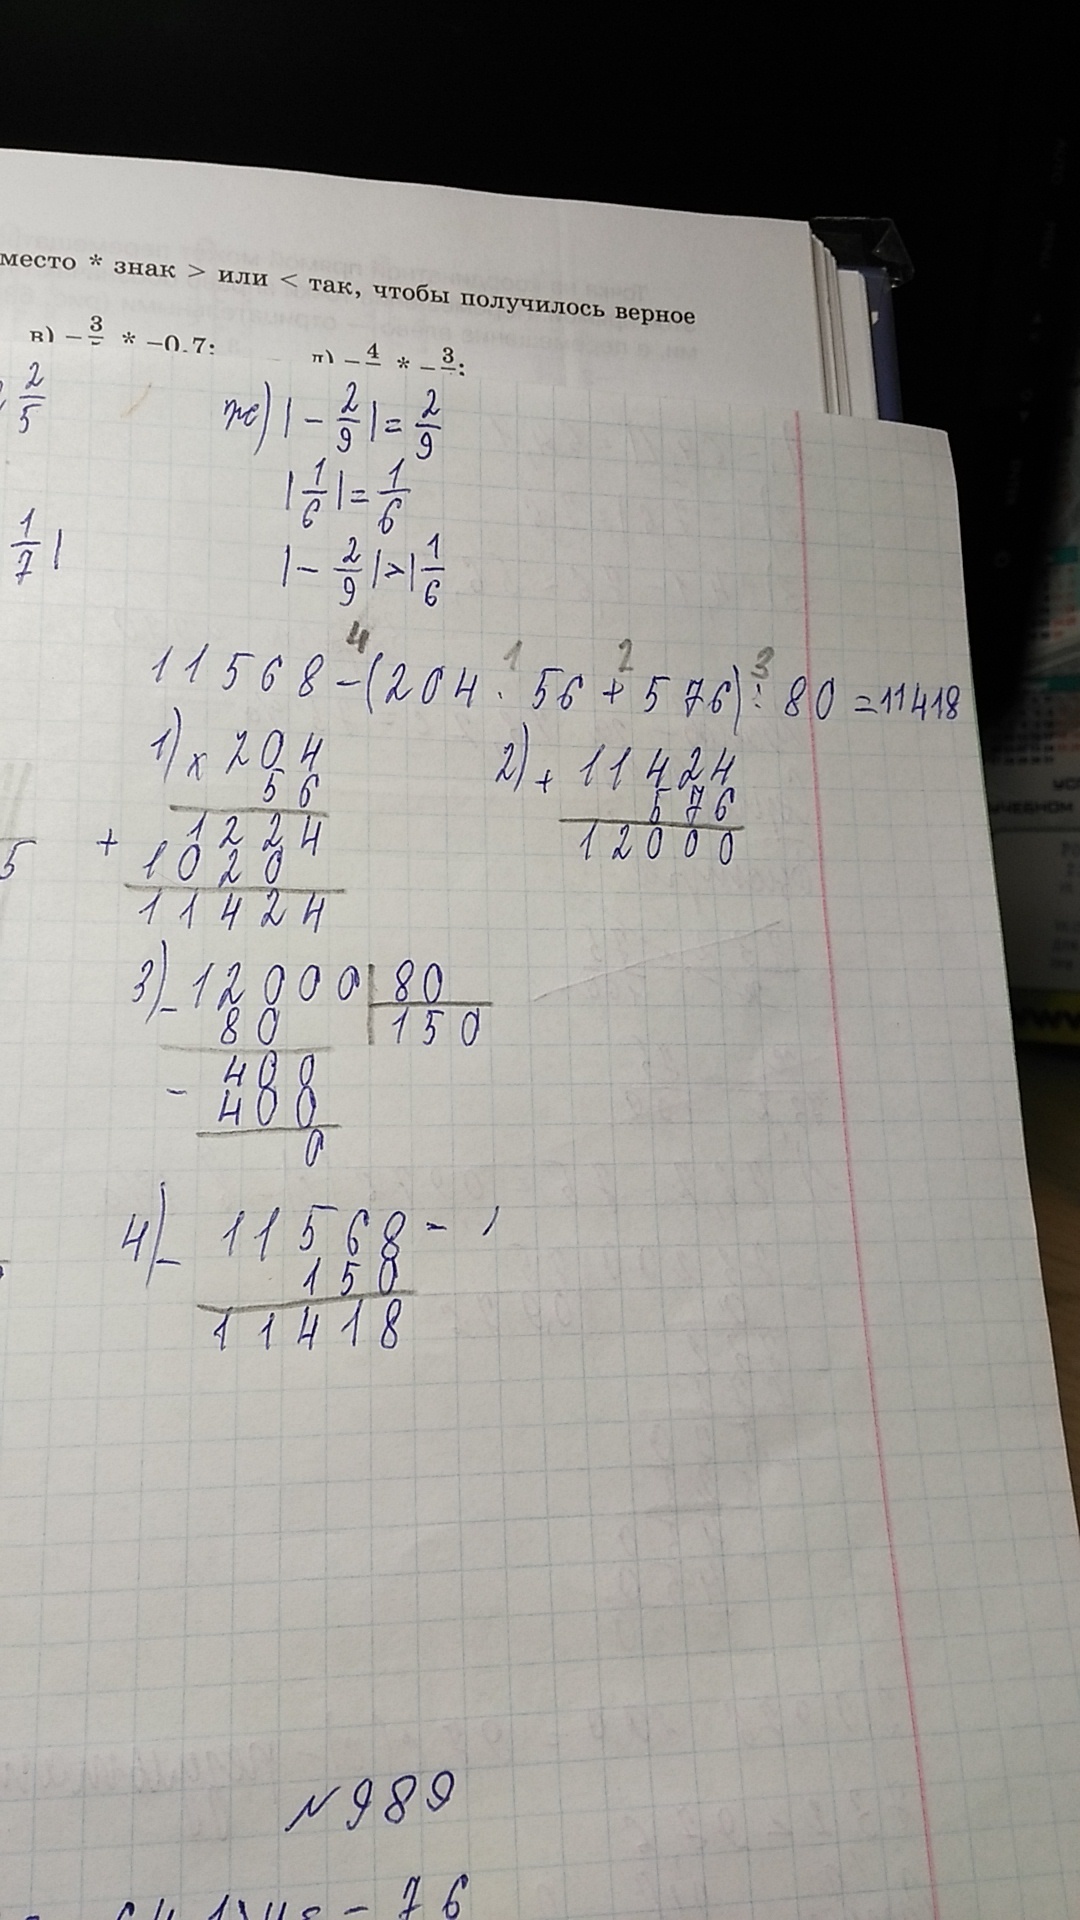 место * знак > или < так, чтобы получилось верное
в) −3 * −0,7; д) −4 * −3;
2/5
ж) |−2/9| = 2/9
|1/6| = 1/6
1/7|
|−2/9| > |1/6
4 1 2 3
11568 − (204 · 56 + 576) : 80 = 11418
1) × 204
56
1224
+ 1020
11424
2) + 11424
576
12000
5
3) − 12000 | 80
80 150
400
− 400
0
4) − 11568 −
150
11418
№989
− 76